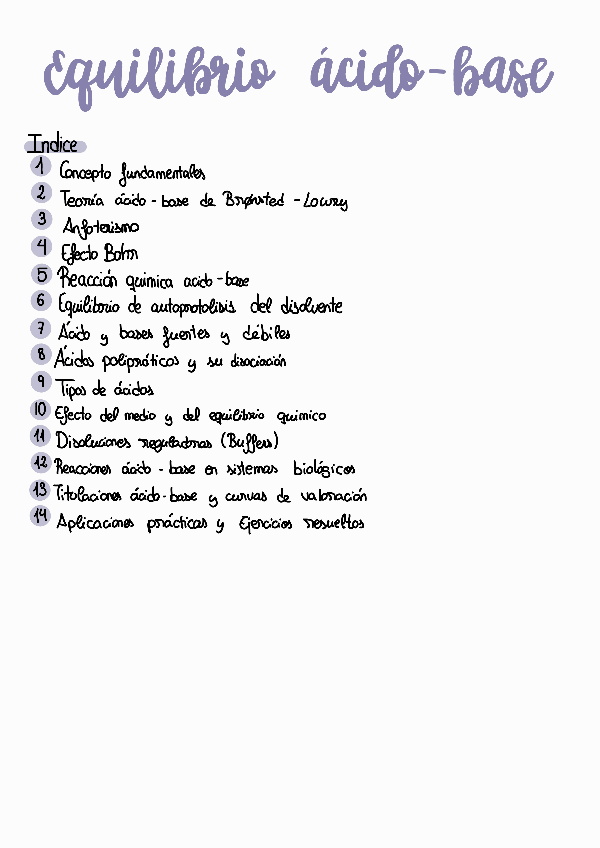 Equilibrio ácido-base
Indice
1 Concepto fundamentales
2 Teoría ácido-base de Brønsted-Lowry
3 Anfoterismo
4 Efecto Bohr
5 Reacción quimica acido-base
6 Equilibrio de autoprotolisis del disolvente
7 Ácido y bases fuertes y débiles
8 Ácidos polipróticos y su disociación
9 Tipos de ácidos
10 Efecto del medio y del equilibrio quimico
11 Disoluciones reguladoras (Buffers)
12 Reacciones ácido-base en sistemas biológicos
13 Titulaciones ácido-base y curvas de valoración
14 Aplicaciones prácticas y Ejercicios resueltos